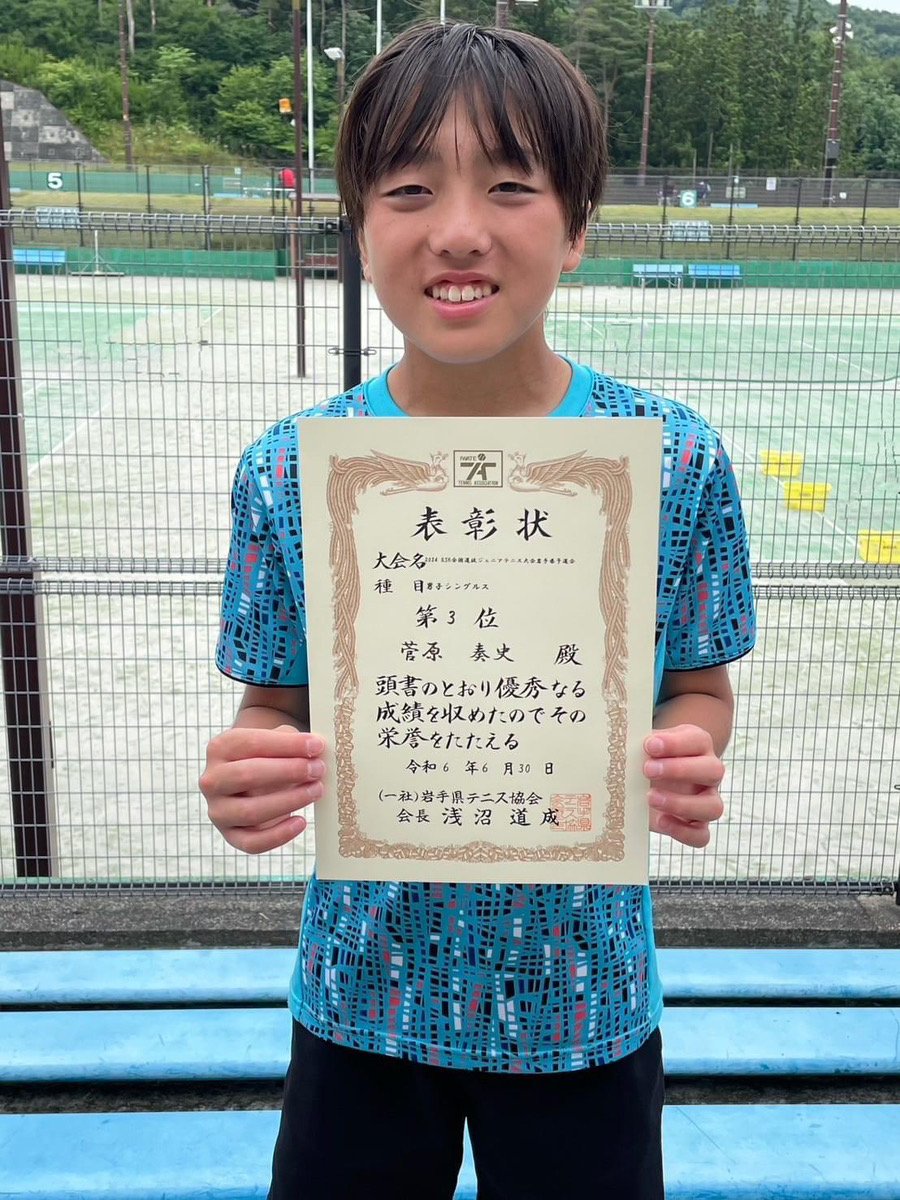 5
6
IWATE
TENNIS ASSOCIATION
表彰状
大会名 2024 RSK全国選抜ジュニアテニス大会岩手県予選会
種 目 男子シングルス
第 3 位
菅原 奏史 殿
頭書のとおり優秀なる
成績を収めたのでその
栄誉をたたえる
令和 6 年 6 月 30 日
(一社)岩手県テニス協会
会長 浅沼 道成